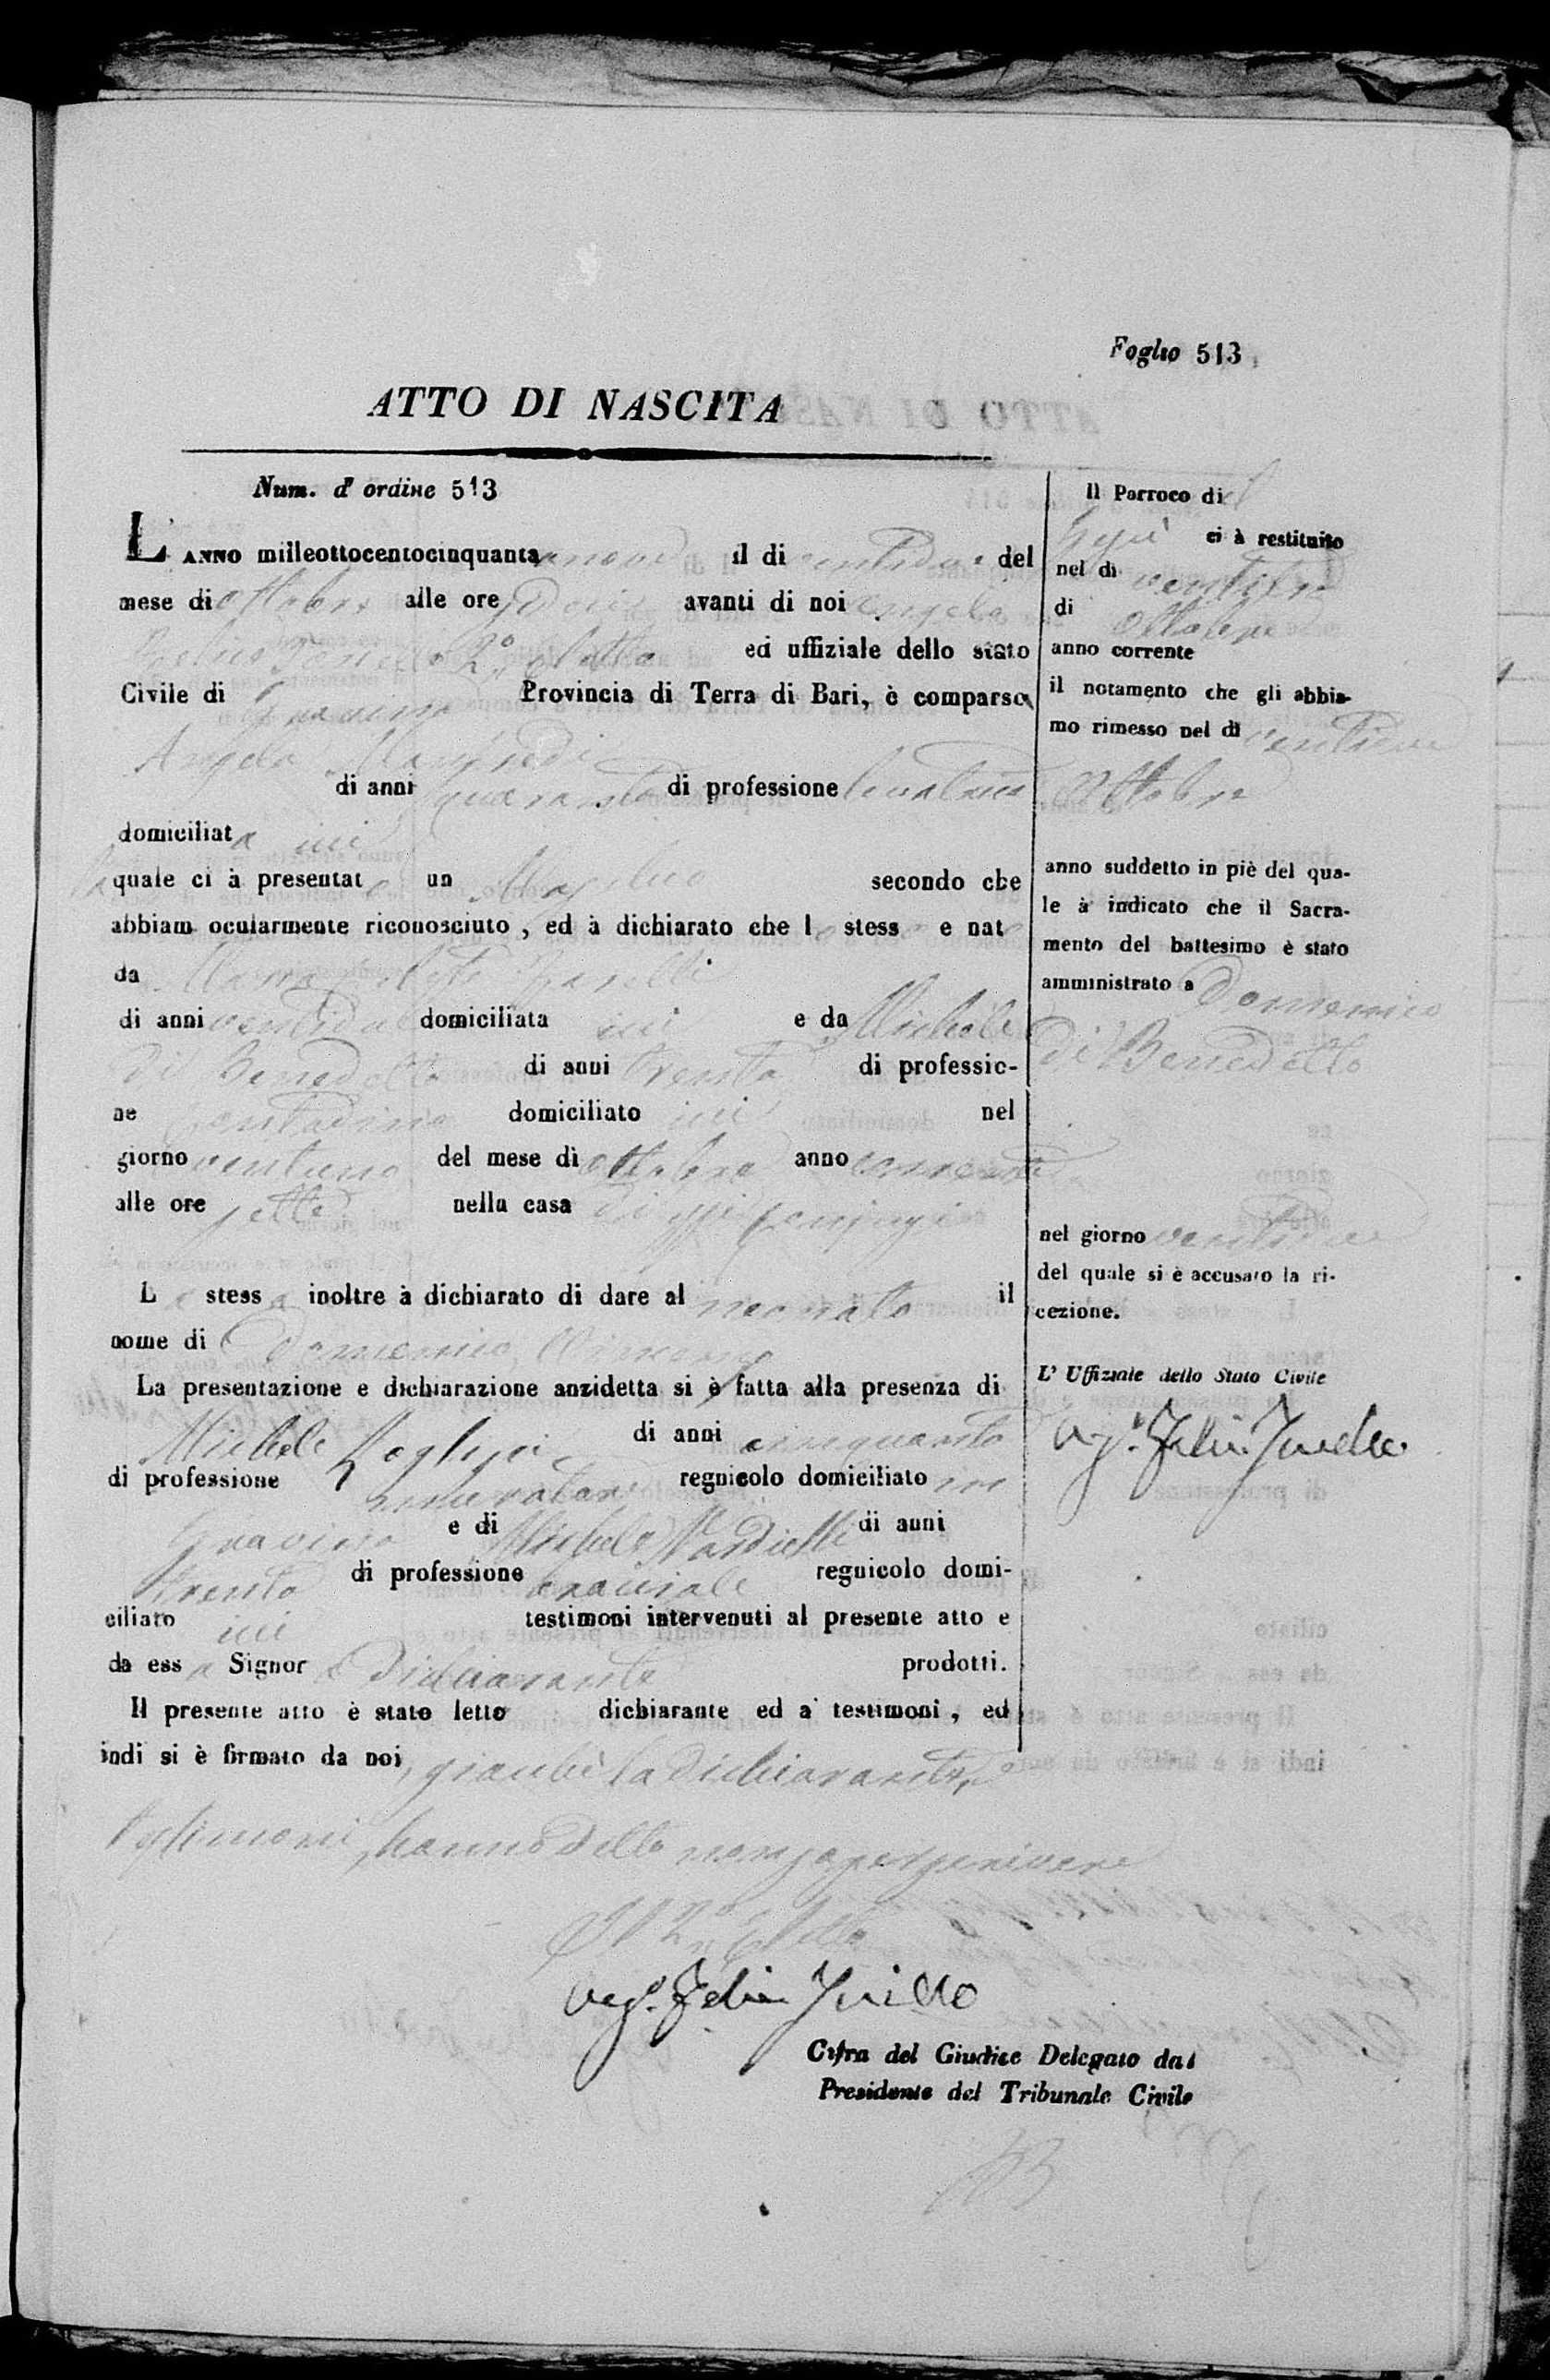 Foglio 513
ATTO DI NASCITA
Num. d' ordine 513
L' ANNO milleottocentocinquantanove il di ventidue del
mese di Ottobre alle ore dodici avanti di noi
2.° eletto ed uffiziale dello stato
Civile di Gravina Provincia di Terra di Bari, è comparsa
Angela Manfredi
di anni quaranta di professione levatrice
domiciliata ivi
quale ci à presentato un Maschio secondo che
abbiam ocularmente riconosciuto, ed à dichiarato che lo stesso e nato
da Maria
di anni ventidue domiciliata ivi e da Michele
di Benedetto di anni trenta di professio-
ne Contadino domiciliato ivi nel
giorno ventuno del mese di ottobre anno corrente
alle ore sette nella casa di essi coniugi
La stessa inoltre à dichiarato di dare al neonato il
nome di Domenico Vincenzo
La presentazione e dichiarazione anzidetta si è fatta alla presenza di
Michele di anni cinquanta
di professione muratore regnicolo domiciliato in
Gravina e di Michele di anni
trenta di professione bracciale regnicolo domi-
ciliato ivi testimoni intervenuti al presente atto e
da essa Signora Dichiarante prodotti.
Il presente atto è stato letto dichiarante ed a' testimoni, ed
indi si è firmato da noi, giacchè la dichiarante,
testimoni, hanno detto non sapere scrivere
Il 2.° Eletto
Cifra del Giudice Delegato dal
Presidente del Tribunale Civile
Il Parroco di
Gesù ci à restituito
nel dì ventitre
di Ottobre
anno corrente
il notamento che gli abbia-
mo rimesso nel dì ventidue
Ottobre
anno suddetto in piè del qua-
le à indicato che il Sacra-
mento del battesimo è stato
amministrato a Domenico
di Benedetto
nel giorno ventidue
del quale si è accusato la ri-
cezione.
L' Uffiziale dello Stato Civile